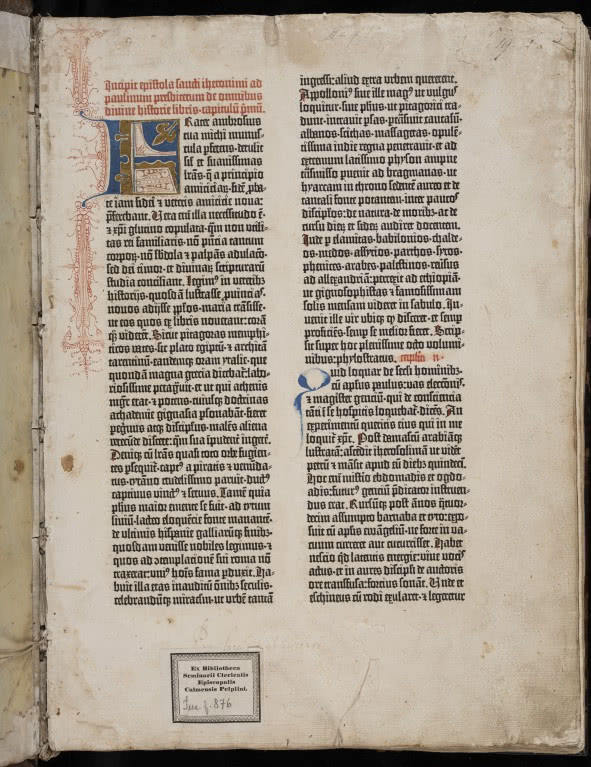 Incipit epistola sancti iheronimi ad
paulinum presbiterum de omnibus
divine historie libris. capitulu pmu.
Frater ambrosius
tua michi munus-
cula pferens. detulit
sil et suauissimas
lras. q a principio
amiciciaru. fide pba-
te iam fidei et veteris amicicie noua:
pferebant. Uera eni illa necessitudo e.
et xpi glutino copulata. qm non vtili-
tas rei familiaris. no pncia tantum
corporu. no sbdola et palpas adulaco.
sed dei timor. et diuinaru scripturaru
studia conciliant. Legim in veterib
historijs. quosda lustrasse puincias.
nouos adijsse pplos. maria trasisse.
ut eos quos ex libris nouerant: cora
q viderent. Sicut pitagoras memphi-
ticos vates. sic plato egiptu. et archita
tarentinu. eandemq oram ytalie. que
quondam magna grecia dicebat: labo-
riosissime peragrauit. et ut qui athenis
mgr erat. et potens. cuiusq doctrinas
achademie gignasia psonabat. fieret
pegrinus atq discipulus. malens aliena
verecude discere: qm sua ipudent ingere.
Deniq cu lras quasi toto orbe fugien-
tes psequit. capt a piratis et venuda-
tus. tyrano crudelissimo paruit. duct
captiuus vinct et seruus. Tame quia
phus maior emente se fuit. ad tytum
liuiu. lacteo eloquecie fonte manante.
de vltimis hispanie galliaruq finib
quosdam venisse nobiles legimus. et
quos ad contemplacione sui roma no
traxerat: vni hois fama pduxit. Ha-
buit illa etas inauditu omib seculis.
celebranduq miraculu. ut vrbe tanta
ingressi: aliud extra vrbem quererent.
Appolloni siue ille mag ut vulgus
loquitur. siue phus. ut pitagorici tra-
dunt. intrauit psas. ptrasiuit caucasu.
albanos. scithas. massagetas. opule-
tissima indie regna penetrauit. et ad
extremum latissimo physon amne
trasmisso puenit ad bragmanas. ut
hyarcam in throno sedete aureo. et de
tantali fonte potantem. inter paucos
discipulos. de natura. de moribus. ac de
cursu dieru et sideru audiret docentem.
Inde p elamitas. babilonios. chalde-
os. medos. assyrios. parthos. syros.
phenices. arabes. palestinos. reuersus
ad allexandria: perrexit ad ethiopia.
ut gignosophistas et famosissimam
solis mensam videret in sabulo. In-
uenit ille vir vbiq qd disceret. et semp
proficiens. semp se melior fieret. Scrip-
sit super hoc plenissime octo volumi-
nibus: phylostratus. capitulu ii.
Quid loquar de seculi hominib.
cu apstus paulus. vas electonis.
et magister genciu. qui de consciencia
tanti i se hospitis loquebat. dices. An
experimentu queritis eius qui in me
loquit xpc. Post damascu arabiaq
lustratam: ascedit iherosolima ut videt
petru et masit apud eu dieb quindeci.
Hoc eni misterio ebdomadis et ogdo-
adis: futur genciu pdicator instruen-
dus erat. Rursuq post anos qtuor-
decim assumpto barnaba et tyto: expo-
suit cu apstis euangeliu. ne forte in va-
cuum curreret aut cucurrisset. Habet
nescio qd latentis energie: viue vocis
actus. et in aures discipuli de auctoris
ore transfusa: forcius sonat. Unde et
eschineus cu rodi exularet. et legeretur
Ex Bibliotheca
Seminarii Clericalis
Episcopalis
Culmensis Pelplini.